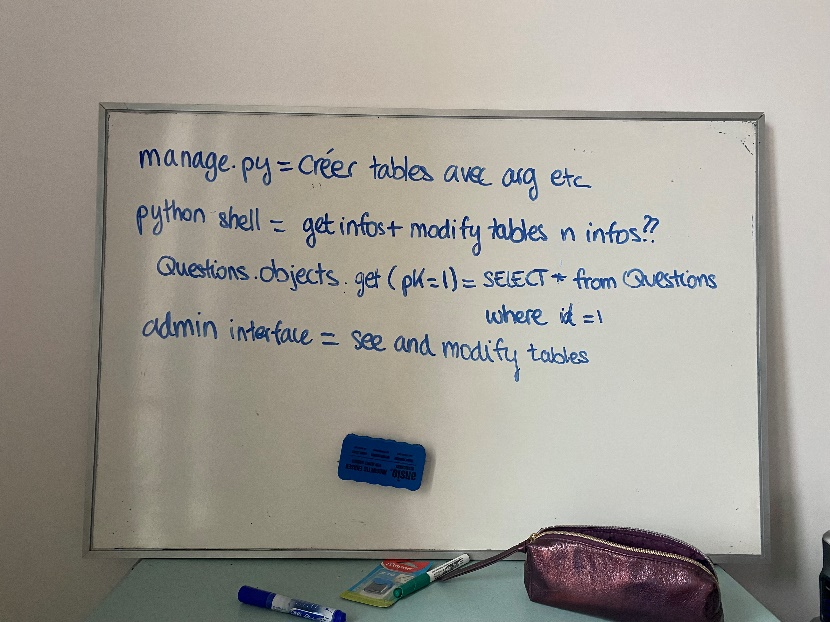 manage.py = Créer tables avec arg etc
python shell = get infos + modify tables n infos??
Questions.objects.get (pK=1) = SELECT * from Questions
where id = 1
admin interface = see and modify tables